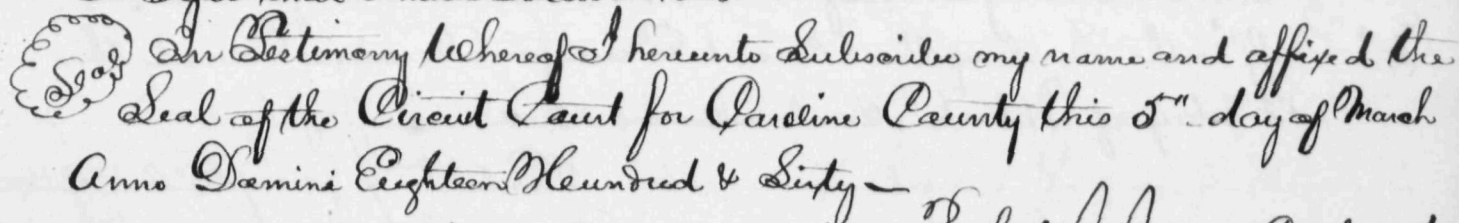 Seal In Testimony Whereof I hereunto Subscribe my name and affixed the
Seal of the Circuit Court for Caroline County this 5" day of March
Anno Domini Eighteen Hundred & Sixty —